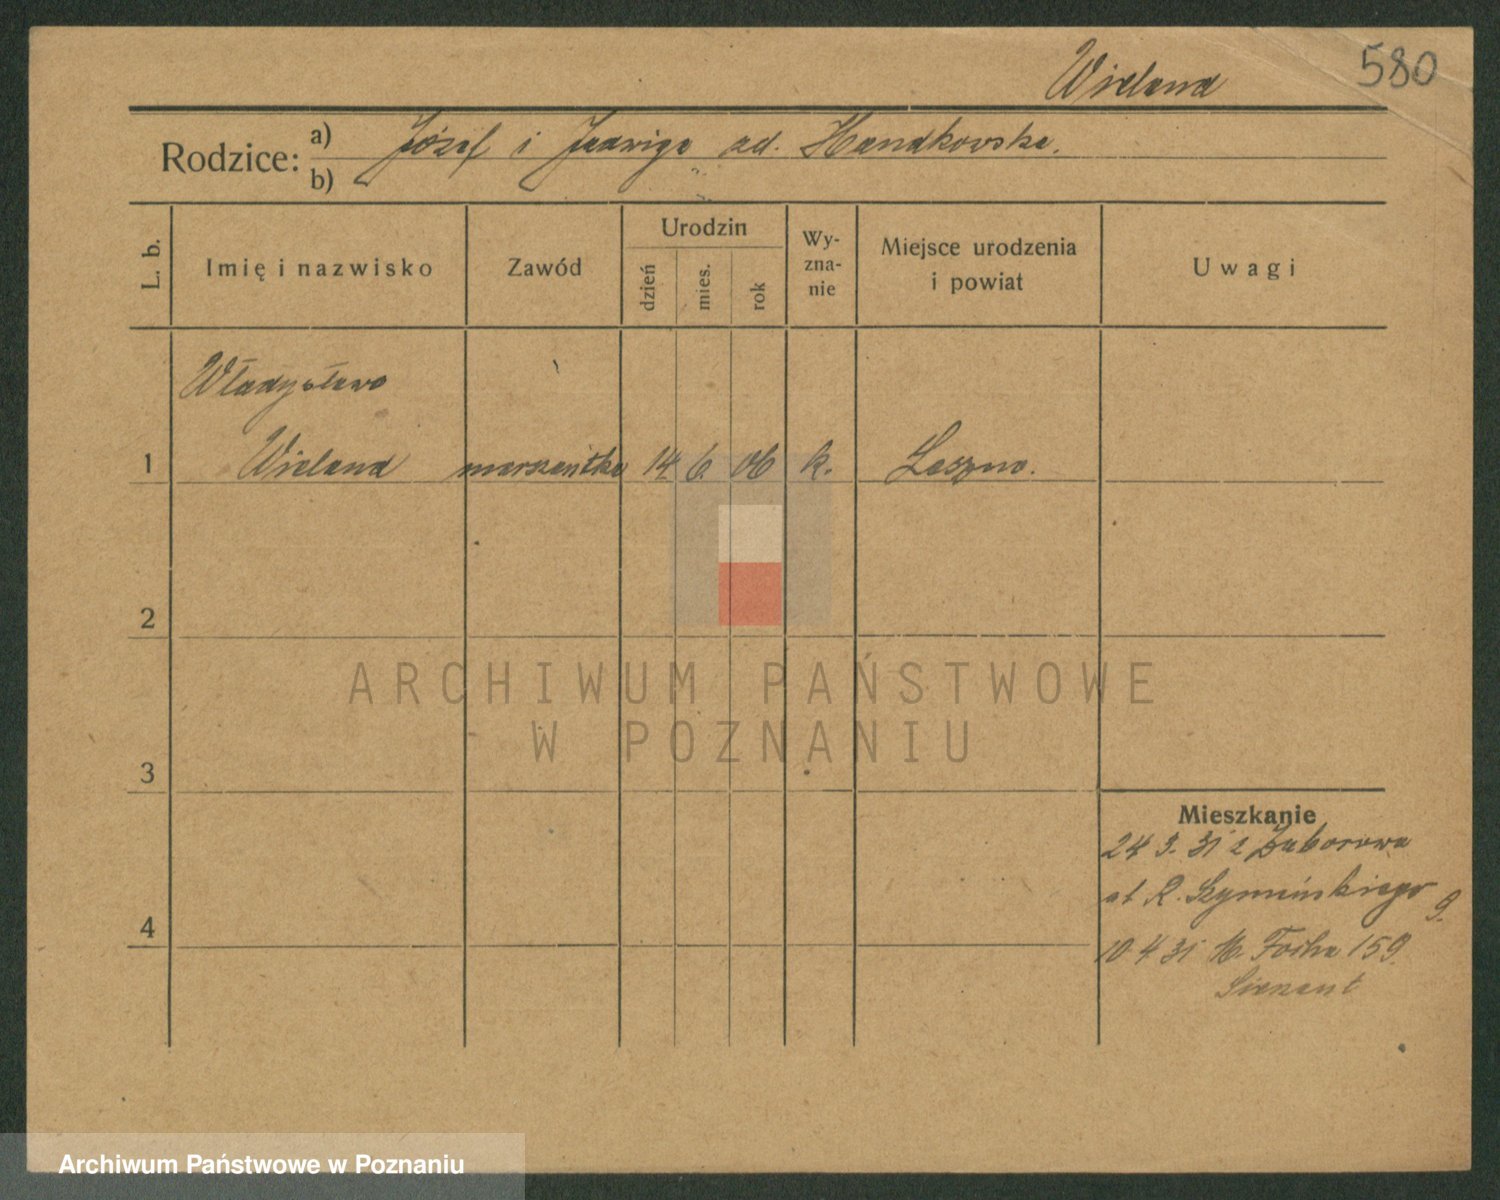 580
Wieland
Rodzice:
a) Józef i Jadwiga
b)
L. b.
Imię i nazwisko
Zawód
Urodzin
dzień
mies.
rok
Wy-
zna-
nie
Miejsce urodzenia
i powiat
Uwagi
Władysława
1 Wieland 14 6. 06 k. Leszno.
2
ARCHIWUM PAŃSTWOWE
W POZNANIU
3
Mieszkanie
24 3. 31 z Zaborowa
R. Szymińskiego 9.
4
10 4 31 M. Focha 159.
Archiwum Państwowe w Poznaniu